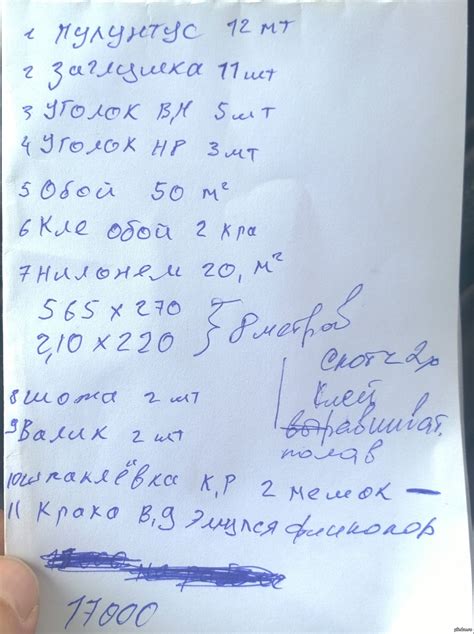 1 Пулунтус 12 мт
2 Заглушка 11 шт
3 Уголок ВН 5 шт
4 Уголок НР 3 мт
5 Обой 50 м²
6 Кле обой 2 кра
7 Нилонем 20, м²
565 х 270
2,10 х 220 } 8 метров
Скотч 2х
Клей
выравниват.
полав
8 шожа 2 шт
9 Валик 2 шт
10 шпаклёвка К,Р 2 мемок —
11 Крако В,Д Эмулся
17000